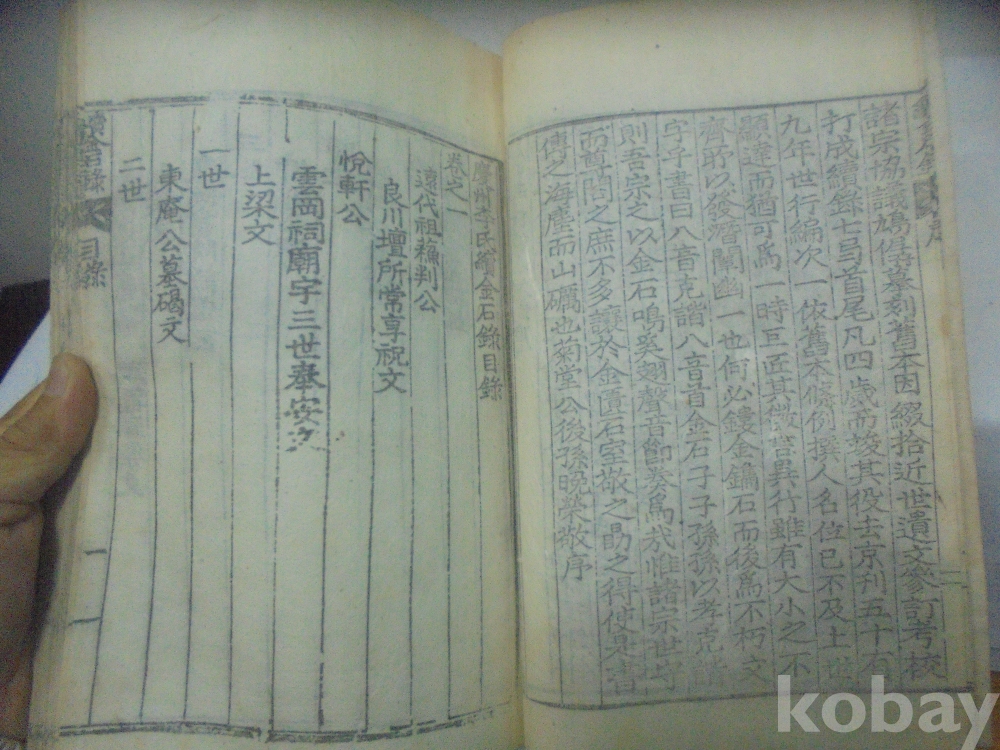 諸宗協議鳩僝墓刻舊本因綴拾近世遺文參訂考校
打成續錄七弓首尾凡四歲而竣其役去京刊五十有
九年世行編次一依舊本條例撰人名位已不及上世
顯達而猶可爲一時巨匠其微言異行雖有大小之不
齊所以發潛闡幽一也何必鏤金鐫石而後爲不朽之
字子書曰八音克諧八音首金石子子孫孫以孝克諧
則吾宗之以金石鳴奚翅聲音節奏爲哉惟諸宗世守
而尊閣之庶不多讓於金匱石室敬之勗之得使是書
傳之海塵而山礪也菊堂公後孫晩榮敬序
慶州李氏續金石錄目錄
卷之一
遠代祖參判公
良川壇所常享祝文
悅軒公
雲岡祠廟宇三世奉安
上梁文
一世
東庵公墓碣文
二世
續金石錄
目錄
一
kobay